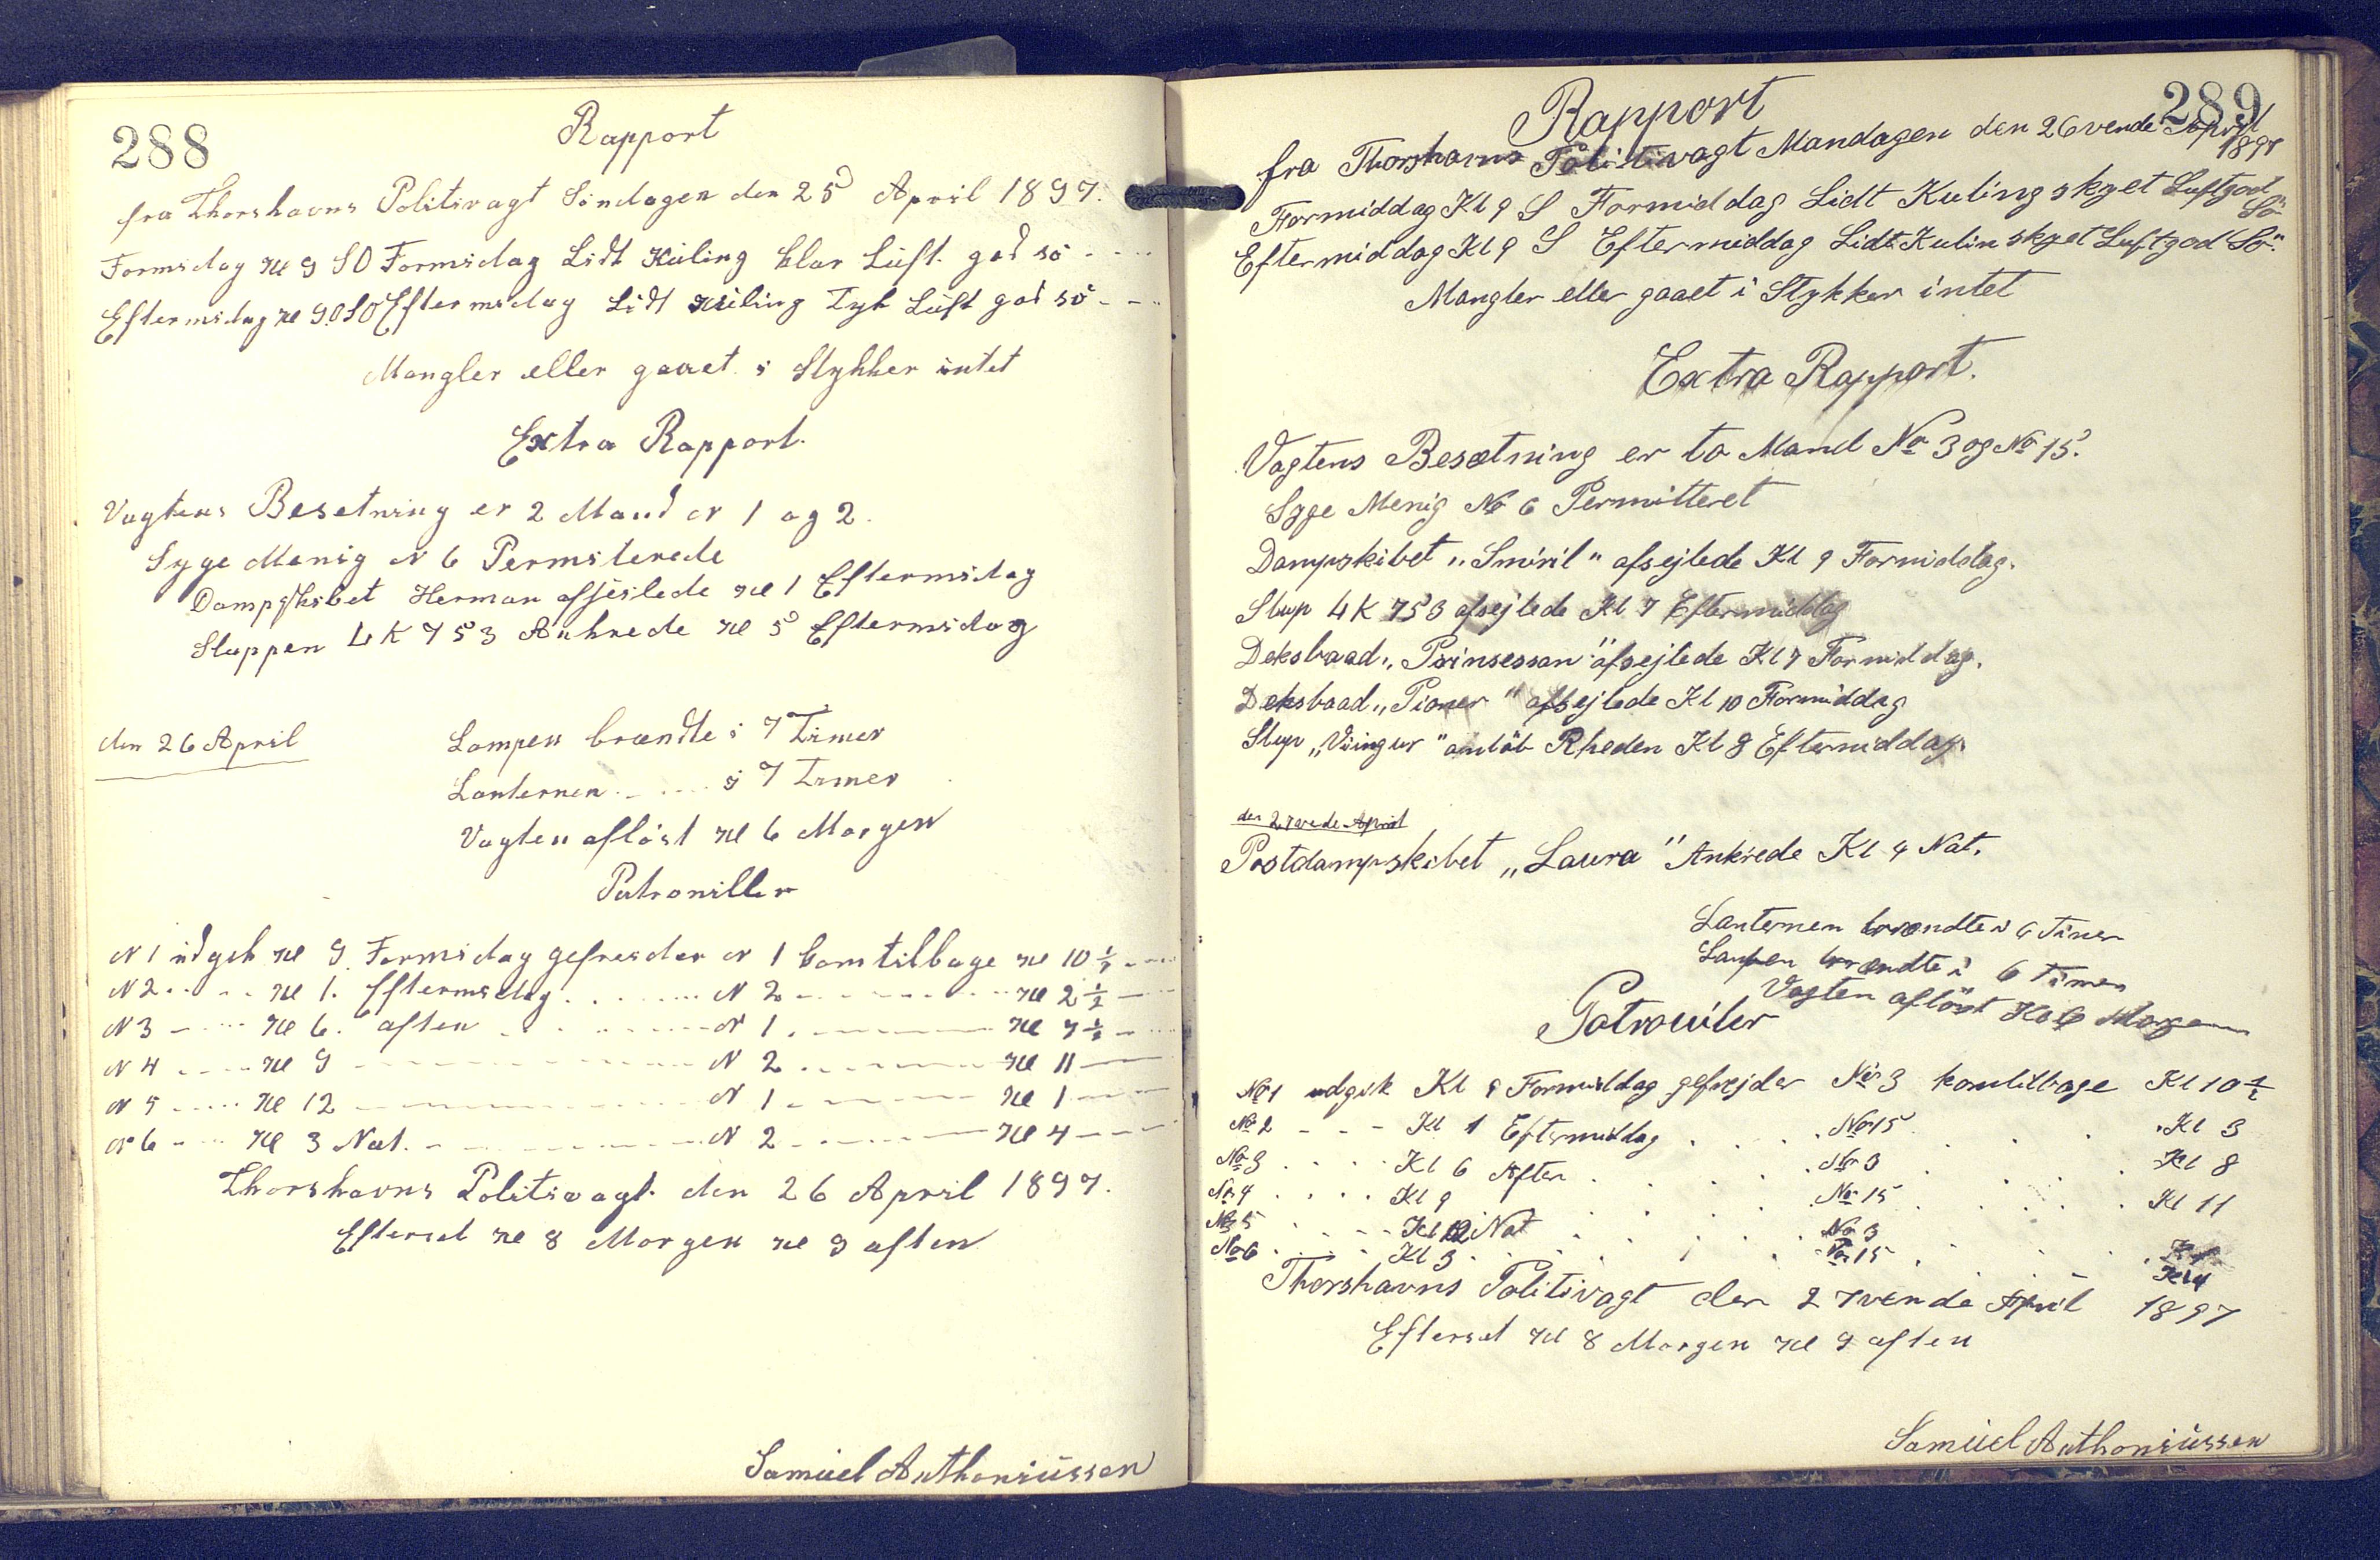 288
Rapport
fra Thorshavns Politivagt Söndagen den 25 April 1897.
Formidag Kl 9 SO Formidag Lidt Kuling klar Luft god sö
Eftermidag Kl 9 OSO Eftermidag Lidt Kuling Tyk Luft god sö
Mangler eller gaaet i Stykker intet
Extra Rapport.
Vagtens Besetning er 2 Mand N 1 og 2.
Syge Menig N 6 Permiterede
Dampskibet Herman afsejlede Kl 1 Eftermidag
Sluppen LK 753 Ankrede Kl 5 Eftermidag
den 26 April
Lampen brændte i 7 Timer
Lanternen i 7 Timer
Vagten aflöst Kl 6 Morgen
Patroniller
N 1 udgik Kl 9 Formidag gefreider N 1 kom tilbage Kl 10 ½
N 2 Kl 1. Eftermidag N 2 Kl 2 ½
N 3 Kl 6. aften N 1 Kl 7 ½
N 4 Kl 9 N 2 Kl 11
N 5 Kl 12 N 1 Kl 1
N 6 Kl 3 Nat. N 2 Kl 4
Thorshavns Politivagt. den 26 April 1897.
Efterset Kl 8 Morgen Kl 9 aften
Samuel Anthoniussen
289
Rapport
fra Thorshavns Politivagt Mandagen den 26vende April
1897
Formiddag Kl 9 S Formiddag Lidt Kuling skyet Luft god
Sö
Eftermiddag Kl 9 S Eftermiddag Lidt Kulin skyet Luft god Sö.
Mangler eller gaaet i Stykker intet
Extra Rapport.
Vagtens Besætning er to Mand No 3 og No 15.
Syge Menig No 6 Permitteret
Dampskibet "Smiril" afsejlede Kl 9 Formiddag.
Slup LK 753 afsejlede Kl 7 Eftermiddag
Deksbaad "Prinsessan" afsejlede Kl 7 Formiddag.
Deksbaad "Pioner" afsejlede Kl 10 Formiddag
Slup "Viingur" anlöb Rheden Kl 8 Eftermiddag.
den 27vede April
Postdampskibet "Laura" Ankrede Kl 4 Nat.
Lanternen brændte i 6 Timer
Lampen brændte i 6 Timer
Vagten aflöst Kl 6 Morgen
Patrouiler
No 1 udgik Kl 9 Formiddag gefrejder No 3 kom tilbage Kl 10 ½
No 2 Kl 1 Eftermiddag No 15 Kl 3
No 3 Kl 6 Aften No 3 Kl 8
No 4 Kl 9 No 15 Kl 11
No 5 Kl 12 Nat No 3 Kl 1
No 6 Kl 3 No 15 Kl 4
Thorshavns Politivagt den 27vende April 1897
Efterset Kl 8 Morgen Kl 9 aften
Samuel Anthoniussen